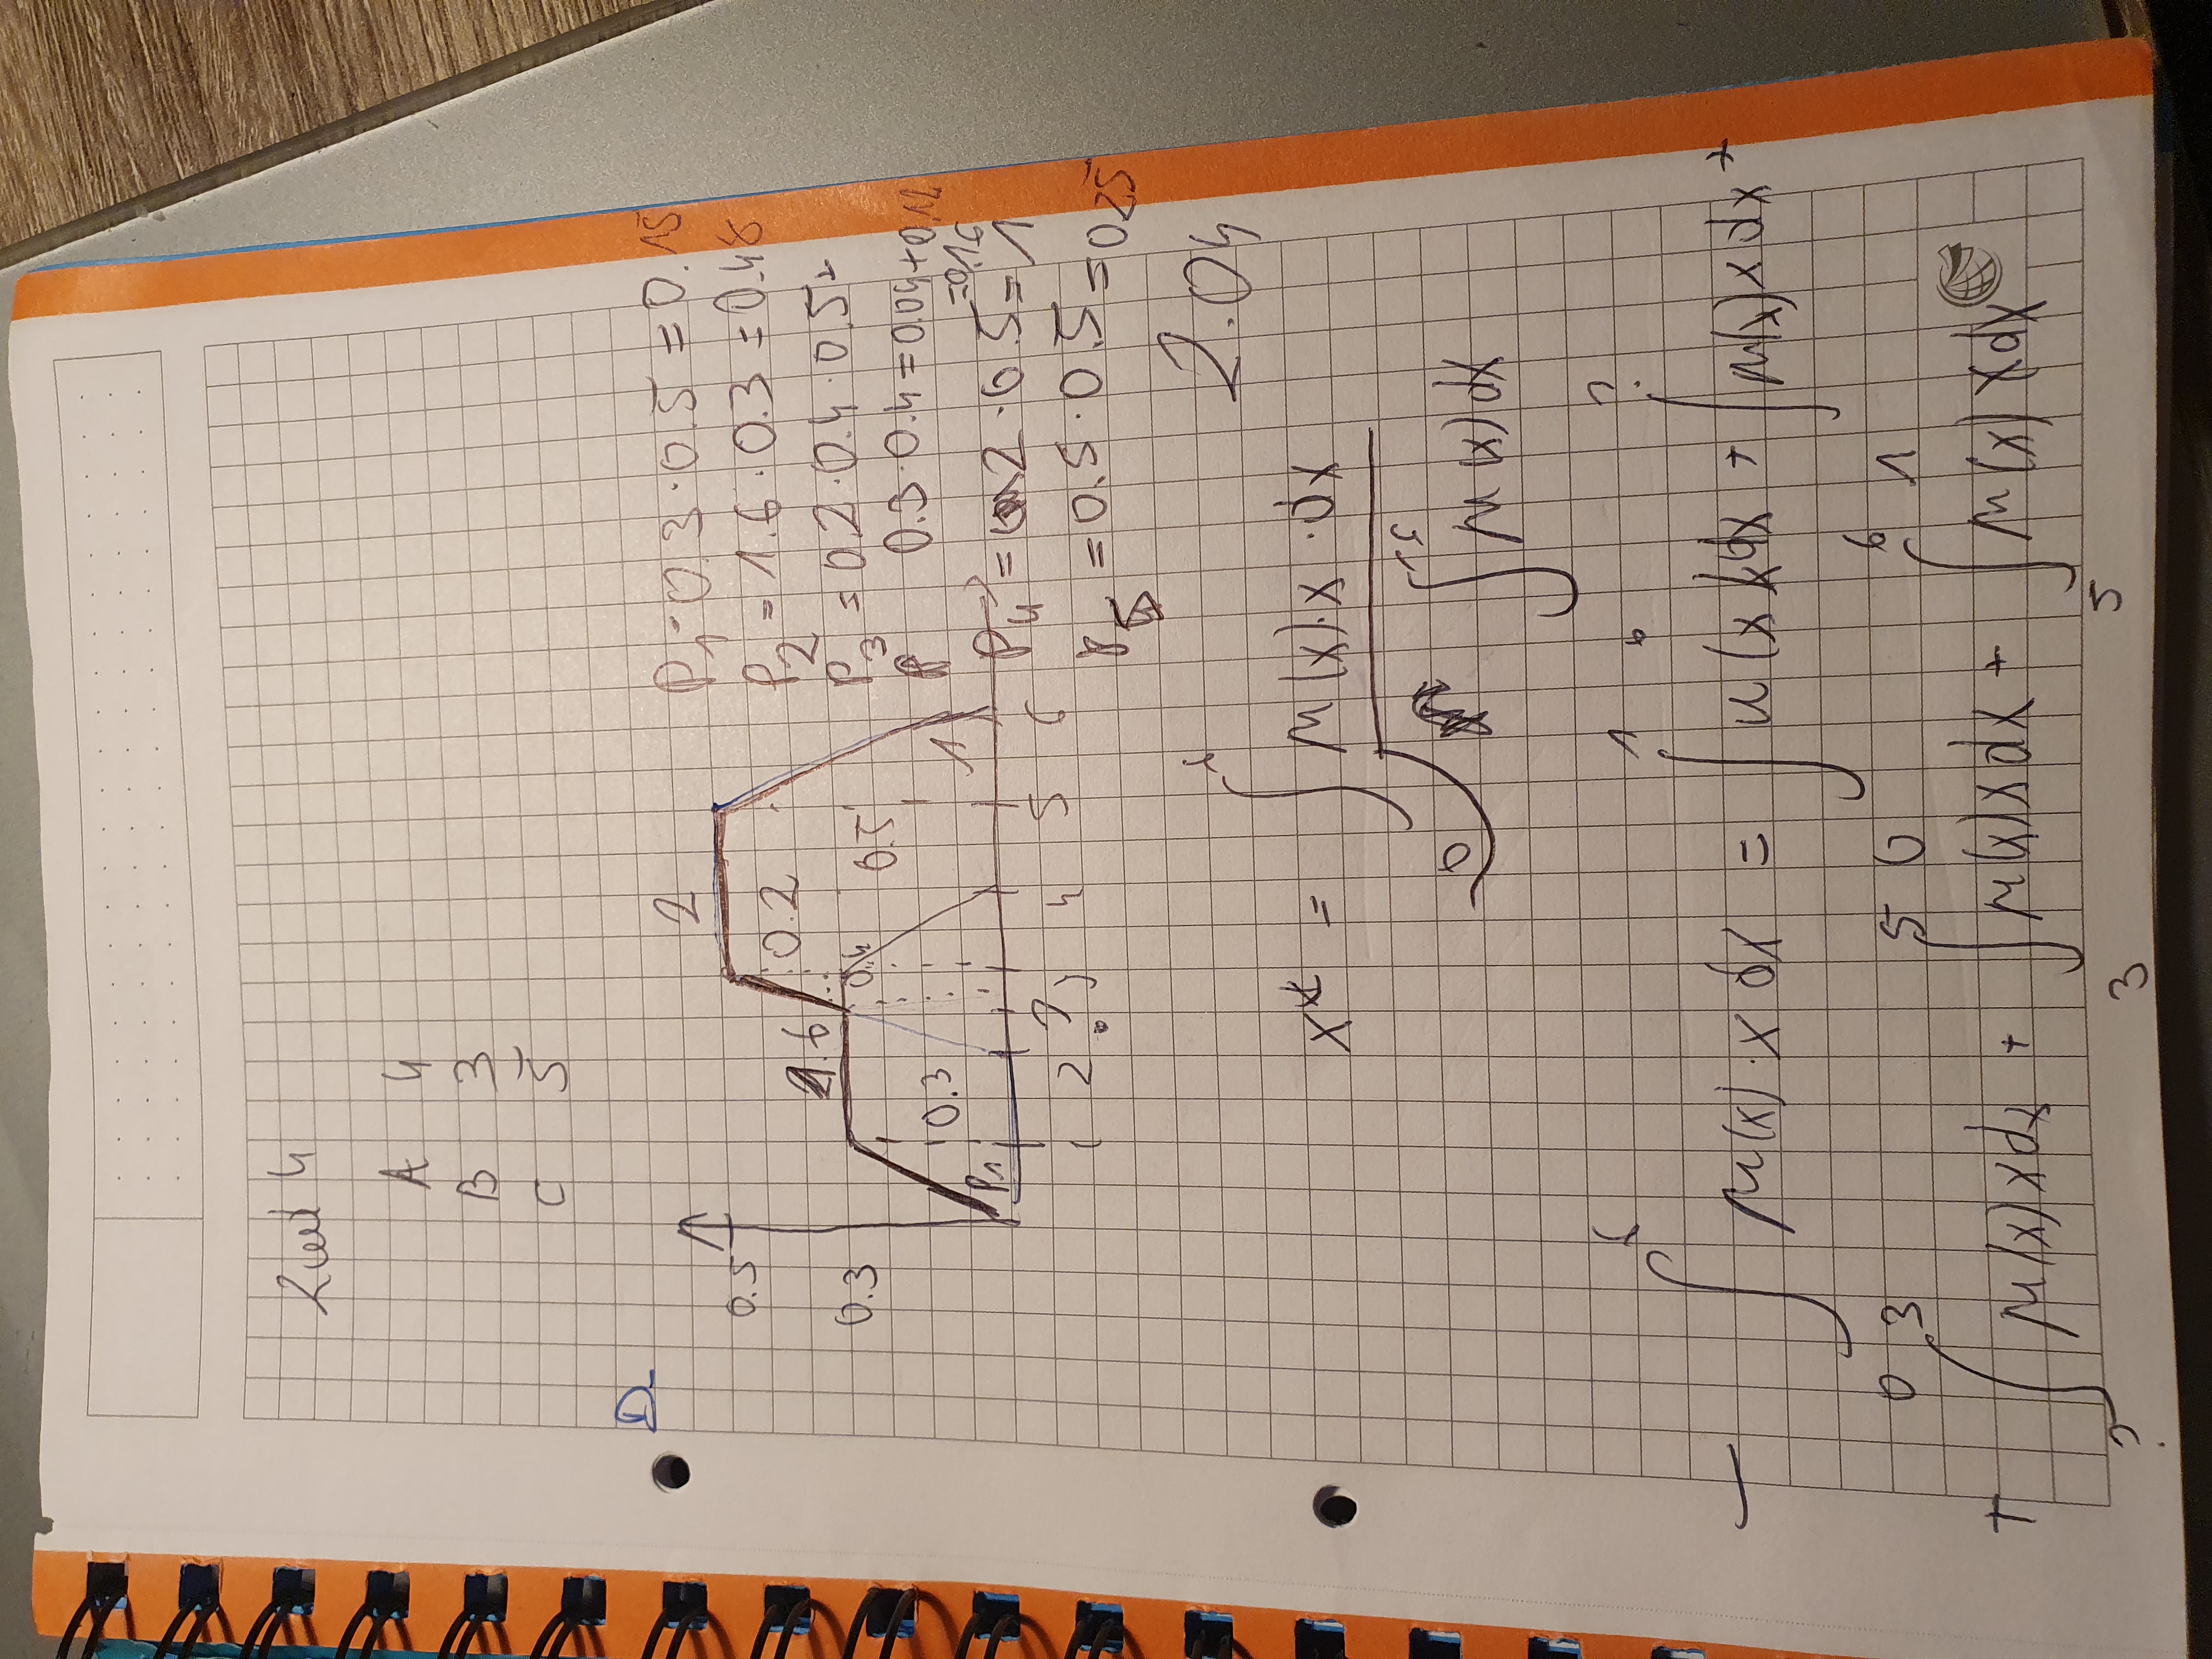 A 4
B 3
C 5
D
2
0.5
1.6
0.2
0.3
0.4
0.5
0.3
P₁
1
1 2 ? 3 4 5 6
P₁ = 0.3 · 0.5 = 0.15
P₂ = 1.6 · 0.3 = 0.48
P₃ = 0.2 · 0.4 · 0.5 +
0.3 · 0.4 = 0.04 + 0.12
= 0.16
P₄ = 2 · 0.5 = 1
P₅ = 0.5 · 0.5 = 0.25
2.04
x* = ∫₀ μ(x) · x · dx
∫ μ(x) dx
∫₀⁶ μ(x) · x dx = ∫₀¹ μ(x) x dx + ∫₁^? μ(x) x dx +
+ ∫_?³ μ(x) x dx + ∫₃⁵ μ(x) x dx + ∫₅⁶ μ(x) x dx